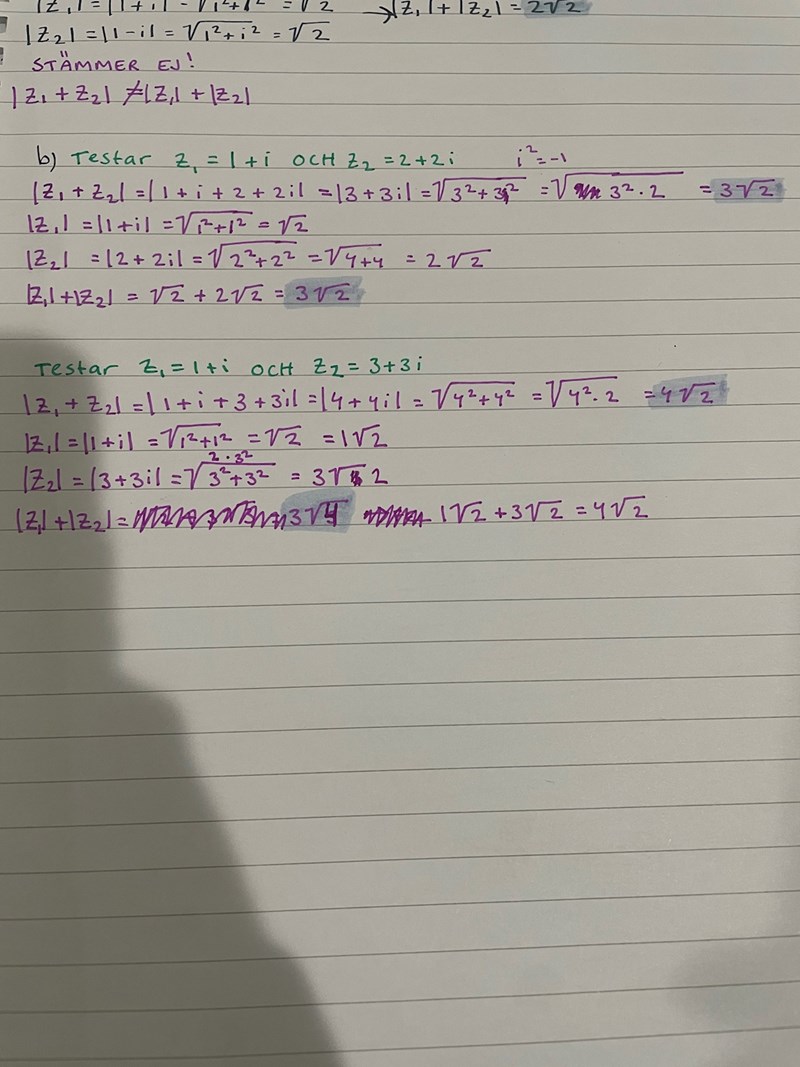 |Z₁| = |1+i| = √1²+1² = √2 →|Z₁|+|Z₂| = 2√2
|Z₂| = |1-i| = √1²+i² = √2
STÄMMER EJ!
|Z₁ + Z₂| ≠ |Z₁| + |Z₂|
b) Testar Z₁ = 1+i OCH Z₂ = 2+2i i² = -1
|Z₁ + Z₂| = |1 + i + 2 + 2i| = |3 + 3i| = √3²+3² = √3²·2 = 3√2
|Z₁| = |1+i| = √1²+1² = √2
|Z₂| = |2 + 2i| = √2²+2² = √4+4 = 2√2
|Z₁|+|Z₂| = √2 + 2√2 = 3√2
Testar Z₁ = 1+i OCH Z₂ = 3+3i
|Z₁ + Z₂| = |1 + i + 3 + 3i| = |4 + 4i| = √4²+4² = √4²·2 = 4√2
|Z₁| = |1+i| = √1²+1² = √2 = 1√2
2·3²
|Z₂| = |3+3i| = √3²+3² = 3√2
|Z₁|+|Z₂| = 3√4 1√2 + 3√2 = 4√2